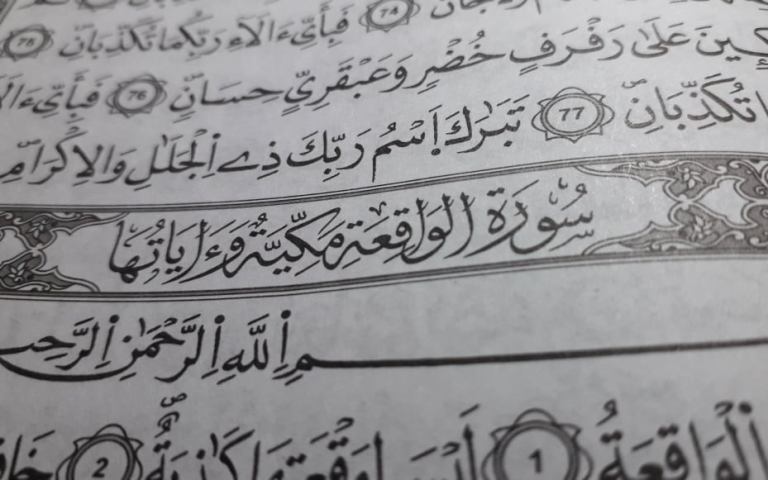 فَبِأَيِّ ءَالَآءِ رَبِّكُمَا تُكَذِّبَانِ 75
ـِٕينَ عَلَىٰ رَفْرَفٍ خُضْرٍ وَعَبْقَرِيٍّ حِسَانٍ 76 فَبِأَيِّ ءَالَآ
تُكَذِّبَانِ 77 تَبَٰرَكَ اَسْمُ رَبِّكَ ذِے اِ۬لْجَلَٰلِ وَالِاكْرَامِ
سُورَةُ الْوَاقِعَةِ مَكِّيَّةٌ وَءَايَاتُهَا
ـمِ اِللَّهِ اِلرَّحْمَٰنِ اِلرَّحِيـ
اَلْوَاقِعَةُ 1 لَيْسَ لِوَقْعَتِهَا كَاذِبَةٌ 2